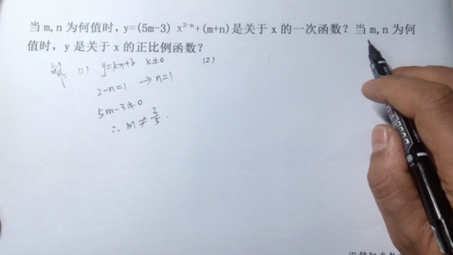 当 m,n 为何值时，y=(5m-3) x²⁻ⁿ+(m+n)是关于 x 的一次函数？当 m,n 为何
值时，y 是关于 x 的正比例函数？
解 (1) y=kx+b k≠0 (2)
2-n=1 → n=1
5m-3≠0
∴ m≠3/5.